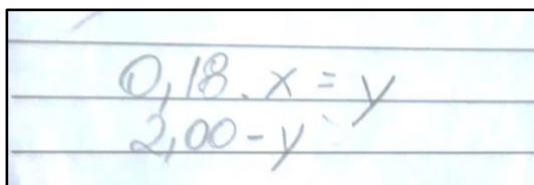 0,18. x = y
2,00 - y